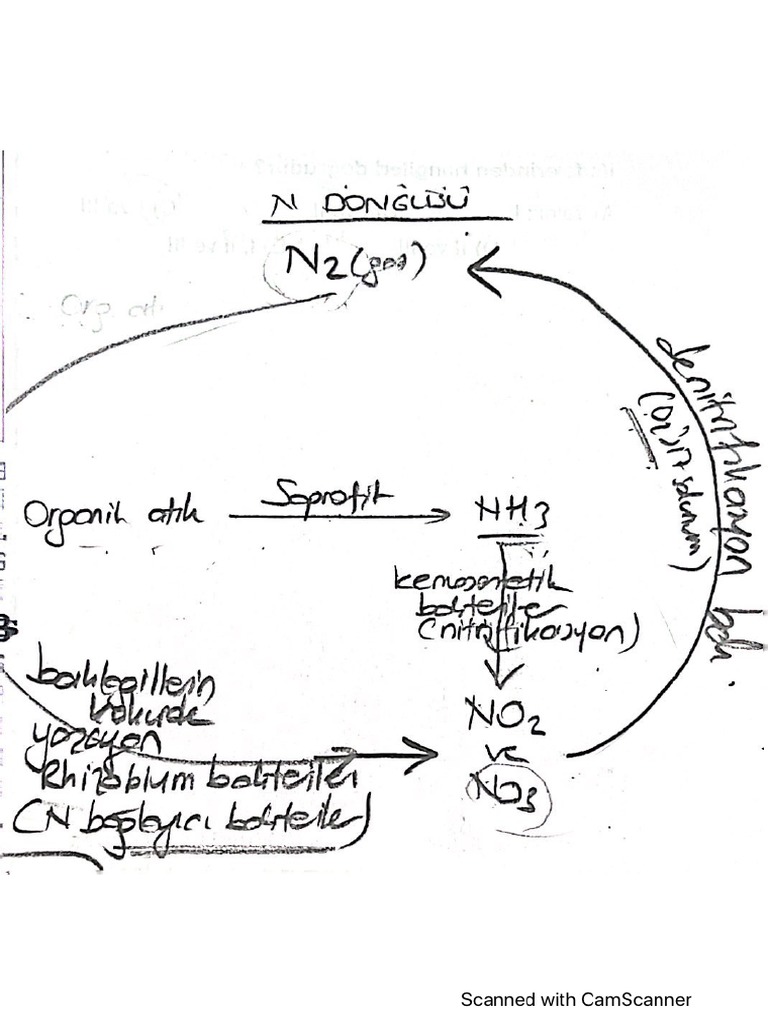 N DÖNGÜSÜ
N2 (gaz)
Org. atı
denitrifikasyon bak.
(O2'siz solunum)
Organik atık
Saprofit
NH3
kemosentetik
bakteriler
(nitrifikasyon)
baklagillerin
kökünde
yaşayan
Rhizobium bakteriler
(N bağlayıcı bakteriler)
NO2
ve
NO3
Scanned with CamScanner